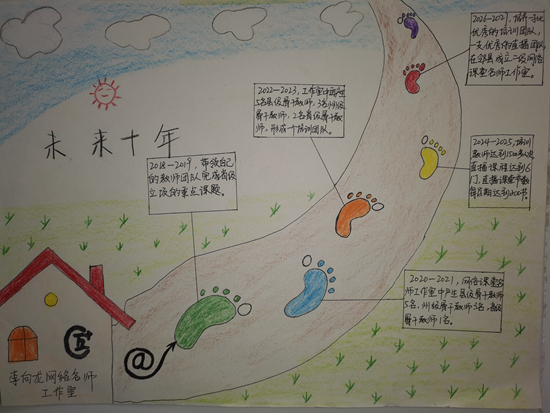 未来十年
2018-2019，带领自己
的教师团队完成省级
立项的重点课题。
2020-2021，网络课堂名
师工作室中产生县级骨干教师
5名，州级骨干教师3名，省级
骨干教师1名。
2022-2023，工作室中产生
5名县级骨干教师，3名州级
骨干教师，2名省级骨干教
师，形成一个培训团队。
2024-2025，培训
教师达到1500多人次
直播课程达到6
门，直播课堂节数
每学期达到200节。
2026-2027，培养一支
优秀的培训团队，
一支优秀的直播团队
在邻县成立二级网络
课堂名师工作室。
李向龙网络名师
工作室
@